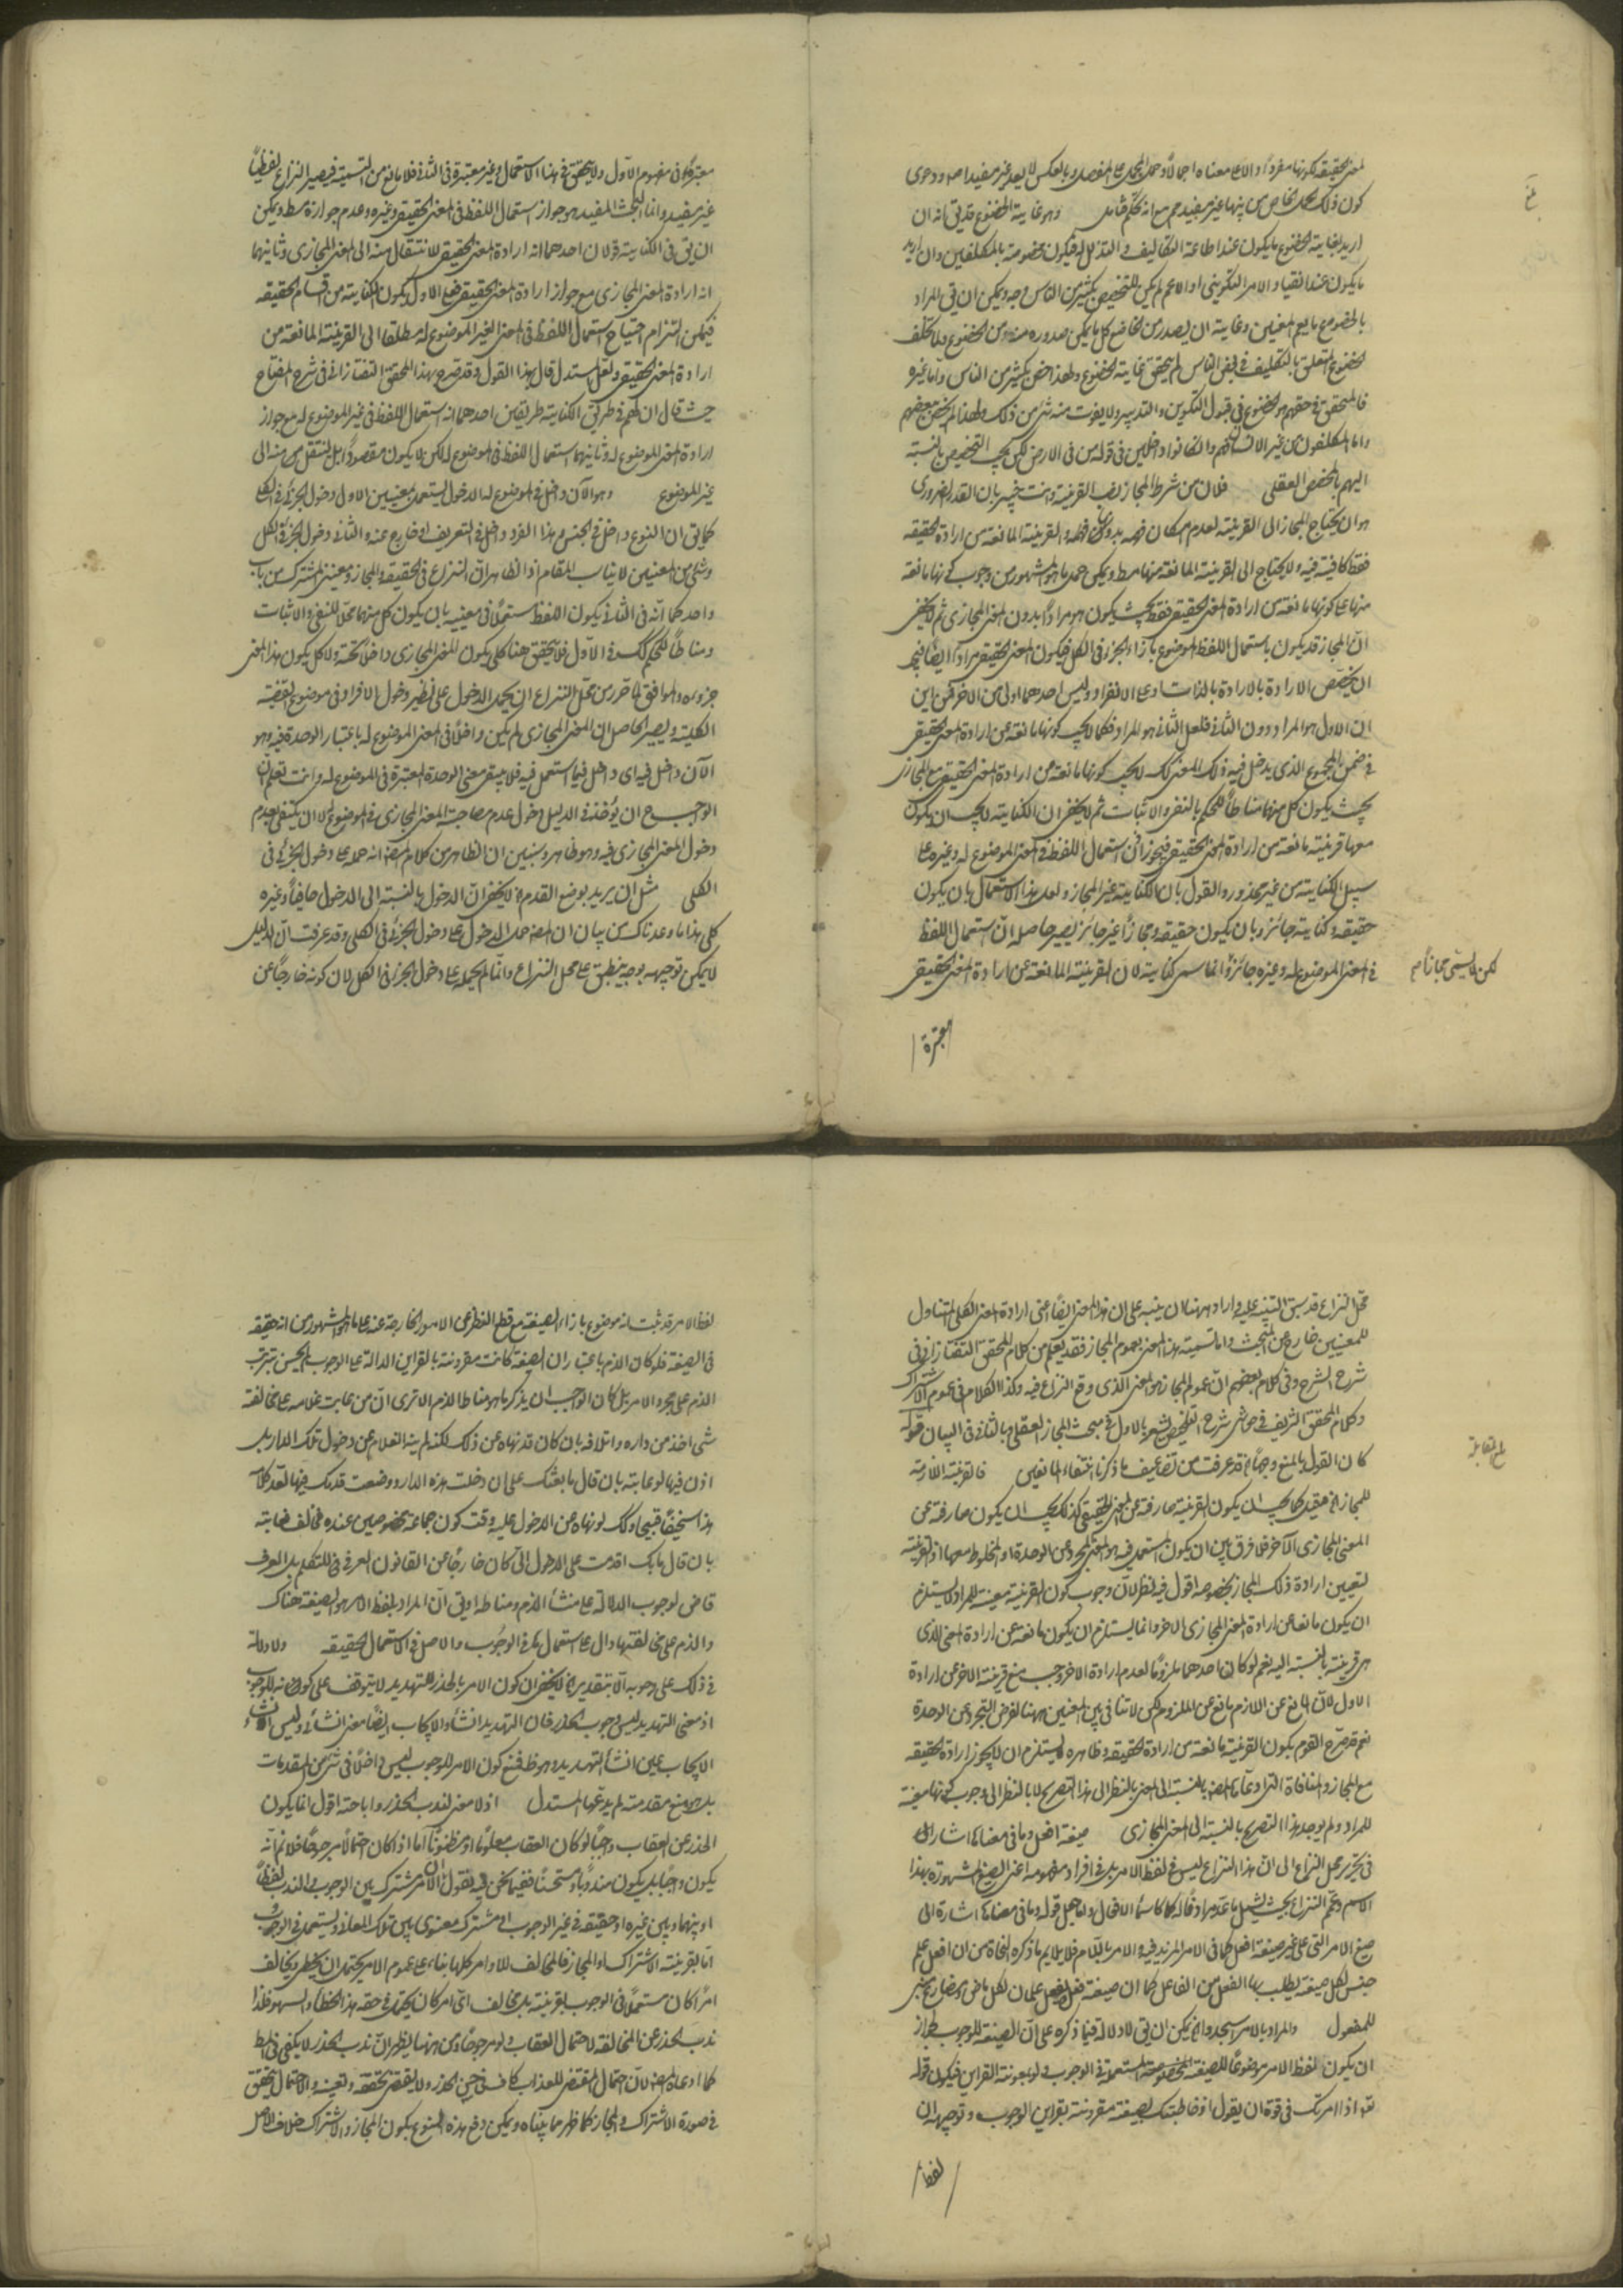 كون ذلك محل خاص بينها غير مفيد مع انه تحكم فتامل وهو غاية الخضوع قد يق انه ان
اريد بغاية الخضوع ما يكون عند اطاعة التكاليف والتذلل له فيكون مخصوصة بالمكلفين وان اريد
ما يكون عند انقياد الامر التكويني او الاعم لم يكن للتخصيص بكثير من الناس وجه ويمكن ان يق المراد
بالخضوع ما يعم المعنيين وغاية ان يصدر من الخاضع كل ما يمكن صدوره منه من الخضوع ولما تخلف
الخضوع المتعلق بالتكليف في بعض الناس لم يتحقق غاية الخضوع ولهذا خص بكثير من الناس واما غيره
فالمتحقق في حقهم هو الخضوع في قبول التكوين والتدبير ولا يفوت منه شئ من ذلك ولهذا لم يخص بعضهم
واما المكلفون من غير الانسان فهم وان كانوا داخلين في قوله من في الارض لكن يجب التخصيص بالنسبة
اليهم بالمخصص العقلي فلان من شرط المجاز نصب القرينة وانت خبير بان القدر الضروري
هو ان يحتاج المجاز الى القرينة لعدم امكان فهمه بدونها والقرينة المانعة من ارادة الحقيقة
فقط كافية فيه ولا يحتاج الى القرينة المانعة منها مط ويمكن حمل ما هو المشهور من وجوب كونها مانعة
منها على كونها مانعة من ارادة المعنى الحقيقي فقط بحيث يكون هو مرادا بدون المعنى المجازى ثم لا يخفى
ان المجاز قد يكون باستعمال اللفظ الموضوع بازاء الجزء في الكل فيكون المعنى الحقيقي مرادا ايضا
ان يخصص الارادة بالارادة بالذات وعلى الانفراد وليس احدهما اولى من الاخر فمن اين
ان الاول هو المراد دون الثاني فلعل الثاني هو المراد فكما لا يجب كونها مانعة عن ارادة المعنى الحقيقي
في ضمن المجموع الذى يدخل فيه ذلك المعنى كك لا يجب كونها مانعة من ارادة المعنى الحقيقي مع المجازى
بحيث يكون كل منهما مناطا للحكم بالنفى والاثبات ثم لا يخفى ان الكناية لا يجب ان يكون
معها قرينة مانعة من ارادة المعنى الحقيقي فيجوز استعمال اللفظ في المعنى الموضوع له وغيره على
سبيل الكناية من غير محذور والقول بان الكناية غير المجاز ولعل هذا الاستعمال بان يكون
حقيقة وكناية جائز وبان يكون حقيقة ومجازا غير جائز يصير حاصله ان استعمال اللفظ
في المعنى الموضوع له وغيره جائز وانما سمى كناية لان القرينة المانعة عن ارادة المعنى الحقيقي
لكن لا يسمى مجازا
معتبرة
معتبرة في مفهوم الاول ولا يتحقق في هذا الاستعمال وغير معتبرة في الثاني فلا مانع من التسمية فيصير النزاع لفظيا
غير مفيد وانما البحث المفيد هو جواز استعمال اللفظ في المعنى الحقيقي وغيره وعدم جوازه مط ويمكن
ان يق في الكناية قولان احدهما انه ارادة المعنى الحقيقي للانتقال منه الى المعنى المجازى وثانيهما
انه ارادة المعنى المجازى مع جواز ارادة المعنى الحقيقي فعلى الاول يكون الكناية من اقسام الحقيقة
فيمكن التزام احتياج استعمال اللفظ في المعنى الغير الموضوع له مطلقا الى القرينة المانعة من
ارادة المعنى الحقيقي ولعل المستدل قال بهذا القول وقد صرح بهذا المحقق التفتازانى في شرح المفتاح
حيث قال ان لهم في طريق الكناية طريقين احدهما انه استعمال اللفظ في غير الموضوع له مع جواز
ارادة المعنى الموضوع له وثانيهما استعمال اللفظ في الموضوع له لكن لا يكون مقصودا بل لينتقل منه الى
غير الموضوع وهو الآن داخل في الموضوع له الدخول يستعمل بمعنيين الاول دخول الجزئى في الكلى
كما يق ان النوع داخل في الجنس وهذا الفرد داخل في التعريف او خارج عنه والثاني دخول الجزء في الكل
وشئ من المعنيين لا يناسب المقام اذ الظاهر ان النزاع في الحقيقة والمجاز ومعنيى المشترك من باب
واحد كما انه في الثاني يكون اللفظ مستعملا في معنييه بان يكون كل منهما محلا للنفى والاثبات
ومناطا للحكم كك في الاول فلا يتحقق هنا كلى يكون المعنى المجازى داخلا تحته ولا كل يكون هذا المعنى
جزءه والموافق لما تحرر من محل النزاع ان يحمل الدخول على نظير دخول الافراد في موضوع القضية
الكلية ويصير الحاصل ان المعنى المجازى لم يكن داخلا في المعنى الموضوع له باعتبار الوحدة فيه وهو
الآن داخل فيه اى داخل فيما استعمل فيه فلا يبقى معنى الوحدة المعتبرة في الموضوع له وانت تعلم ان
الواجب ح ان يؤخذ في الدليل دخول عدم مصاحبة المعنى المجازى في الموضوع له لا ان يكتفى بعدم
دخول المعنى المجازى فيه وهو ظاهر وسنبين ان الظاهر من كلام المص انه حمله على دخول الجزئى في
الكلى مثل ان يريد بوضع القدم لا يخفى ان الدخول بالنسبة الى الدخول حافيا وغيره
كلى هذا ما وعدناك من بيان ان المص حمل الدخول على دخول الجزئى في الكلى وقد عرفت ان الدليل
لا يمكن توجيهه بوجه ينطبق على محل النزاع وانما لم يحمله على دخول الجزء في الكل لان كونه خارجا عن
محل النزاع قد سبق التنبيه عليه واراد ههنا ان ينبه على ان هذا المعنى ايضا اعنى ارادة المعنى الكلى المتناول
للمعنيين خارج عن المبحث واما تسمية هذا المعنى بعموم المجاز فقد يعلم من كلام المحقق التفتازانى في
شرح الشرح وفي كلام بعضهم ان عموم المجاز هو المعنى الذى وقع النزاع فيه وكذا الكلام في عموم الاشتراك
وكلام المحقق الشريف في حواشى شرح التلخيص يشعر بالاول في مبحث المجاز العقلى وبالثاني في البيان قوله
كان القول بالمنع وجها قد عرفت من تضاعيف ما ذكرنا انتفاء المانعين فالقرينة اللازمة
للمجاز قيل كما يجب ان يكون القرينة صارفة عن المعنى الحقيقي كذلك يجب ان يكون صارفة عن
المعنى المجازى الآخر فلا فرق بين ان يكون المستعمل فيه هو المعنى المجرد عن الوحدة او المخلوط معها اذ القرينة
لتعيين ارادة ذلك المجاز بخصوصه اقول فيه نظر لان وجوب كون القرينة معينة للمراد لا يستلزم
ان يكون مانعا عن ارادة المعنى المجازى الاخر وانما يستلزم ان يكون مانعة عن ارادة المعنى الذى
هى قرينة بالنسبة اليه نعم لو كان احدهما ملزوما لعدم ارادة الاخر وجب منع قرينة الاخر عن ارادة
الاول لان المانع عن اللازم مانع عن الملزوم لكن لا تنافى بين المعنيين ههنا لفرض التجرد عن الوحدة
نعم قد صرح القوم بكون القرينة مانعة من ارادة الحقيقة وظاهره يستلزم ان لا يجوز ارادة الحقيقة
مع المجاز والمنافاة التى ادعاها المص بالنسبة الى المعنى بالنظر الى هذا التصريح لا بالنظر الى وجوب كونها معينة
للمراد ولم يوجد هذا التصريح بالنسبة الى المعنى المجازى صيغة افعل وما في معناها اشار الى
في تحرير محل النزاع الى ان هذا النزاع ليس في لفظ الامر بل في افراد مفهومه اعنى الصيغ المشهورة بهذا
صيغ الامر التى على غير صيغة افعل كما في الامر المزيد فيه والامر باللام فلا يلايم ما ذكره النحاة من ان افعل علم
جنس لكل صيغة يطلب بها الفعل من الفاعل كما ان صيغة فعل ويفعل علمان لكل ماض ومضارع مبنى
للمفعول والمراد بالامر اسجدوا يمكن ان يق لا دلالة فيما ذكره على ان الصيغة للوجوب لجواز
ان يكون لفظ الامر موضوعا للصيغة المخصوصة المستعملة في الوجوب ولو بمعونة القراين فيكون قوله
تعه اذ امرتك في قوة ان يقول اذ خاطبتك بصيغة مقرونة بقراين الوجوب وتوجيهه ان
لفظ
لفظ الامر قد ثبت انه موضوع بازاء الصيغة مع قطع النظر عن الامور الخارجة عنه على ما هو المشهور من انه حقيقة
في الصيغة فلو كان الذم باعتبار ان الصيغة كانت مقرونة بالقراين الدالة على الوجوب لم يحسن ترتب
الذم على مجرد الامر بل كان الواجب ان يذكر ما هو مناط الذم الا ترى ان من عاتب غلامه على مخالفة
شئ اخذ من داره واتلافه بان كان قد نهاه عن ذلك لكنه لم ينه الغلام عن دخول تلك الدار بل
اذن فيها لو عاتبه بان قال ما بعثك على ان دخلت هذه الدار ووضعت قدمك فيها لعد كلامه
هذا سخيفا قبيحا وكك لو نهاه عن الدخول عليه وقت كون جماعة مخصوصين عنده فخالف فعاتبه
بان قال ما بك اقدمت على الدخول الى كان خارجا عن القانون العرفى في التكلم بل العرف
قاض بوجوب الدلالة على منشأ الذم ومناطه او يق ان المراد بلفظ الامر هو الصيغة هناك
والذم على مخالفتها دال على استعمالها في الوجوب والاصل في الاستعمال الحقيقة ولا دلالة
في ذلك على وجوبه الا بتقدير لا يخفى ان كون الامر بالحذر للتهديد لا يتوقف على كونه للوجوب
اذ معنى التهديد ليس وجوب الحذر فان التهديد انشاء والايجاب ايضا معنى انشائى وليس انشاء
الايجاب عين انشاء التهديد وهو ظ فمنع كون الامر للوجوب ليس داخلا في شئ من المقدمات
بل هو منع مقدمة لم يدعها المستدل اذ لا معنى لندب الحذر واباحته اقول انما يكون
الحذر عن العقاب واجبا لو كان العقاب معلوما او مظنونا اما اذا كان احتمالا مرجوحا فلا نم انه
يكون واجبا بل يكون مندوبا ومستحسنا ففيما نحن فيه نقول ان الامر مشترك بين الوجوب والندب لفظا
او بينهما وبين غيره او حقيقة في غير الوجوب او مشترك معنوى بين تلك المعانى ويستعمل في الوجوب
اما بقرينة الاشتراك او المجاز فالمخالف للاوامر كلها بناء على عموم الامر يحتمل ان يخطى ويخالف
امرا كان مستعملا في الوجوب بقرينة بل مخالف اى امر كان يحتمل في حقه هذا الخطا والسهو فلذا
ندب الحذر عن المخالفة لاحتمال العقاب ولو مرجوحا ومن ههنا يظهر ان ندب الحذر لا يكفى في الربط
كما ادعاه المص لان احتمال المقتضى للعذاب كاف في حسن الحذر ولا يقتضى تحققه وتعينه والاحتمال تحقق
في صورة الاشتراك والمجاز كما ظهر مما بيناه ويمكن دفع هذه المنوع بكون المجاز والاشتراك خلاف الاصل